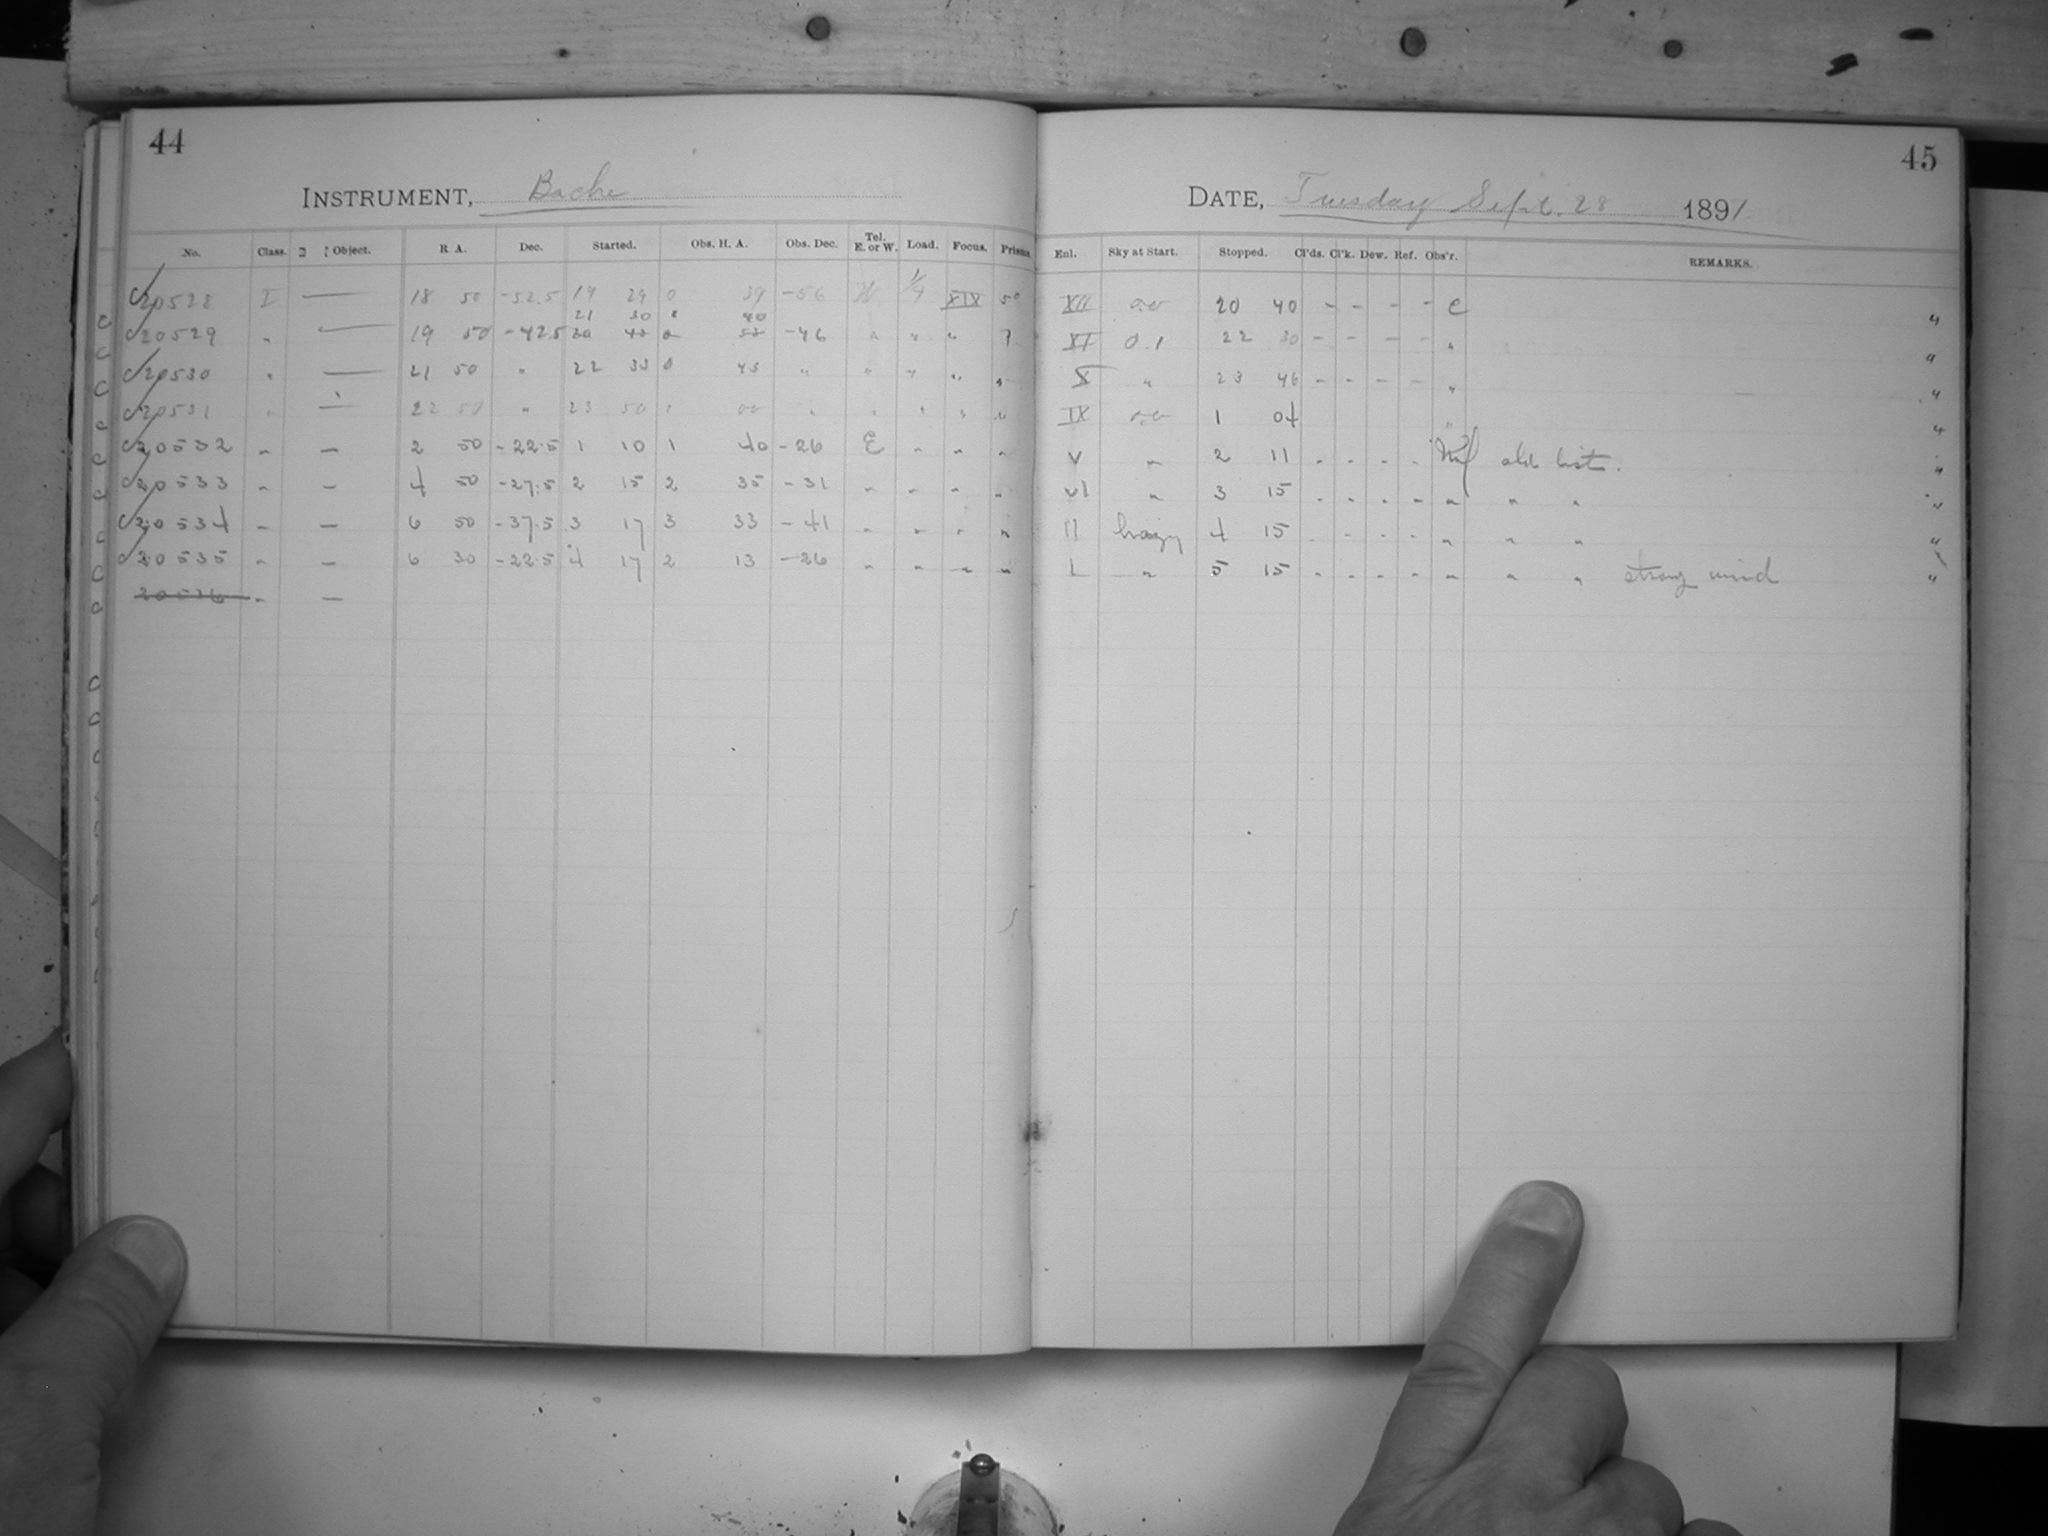 44
INSTRUMENT, Bache
No. Class. Object. R A. Dec. Started. Obs. H. A. Obs. Dec. Tel. E. or W. Load. Focus. Prisms.
20528 I — 18 50 -52.5 19 29 0 39 -56 W 1/4 XIX 5°
21 30 " 40
20529 " — 19 50 -42.5 -46 " " "
20530 " — 21 50 " 22 33 0 43 " " " " "
20531 " — 22 50 " 23 50 1 00 " " " " "
20532 " — 2 50 -22.5 1 10 1 40 -26 E " " "
20533 " — 4 50 -27.5 2 15 2 35 -31 " " " "
20534 " — 6 50 -37.5 3 17 3 33 -41 " " " "
20535 " — 6 30 -22.5 4 17 2 13 -26 " " " "
20536 " —
45
DATE, Tuesday Sept. 28 1891
Enl. Sky at Start. Stopped. Cl'ds. Cl'k. Dew. Ref. Obs'r. REMARKS.
XII 0.0 20 40 - - - - C "
XI 0.1 22 30 - - - - " "
X " 23 46 - - - - " "
IX 0.0 1 04 " "
V " 2 11 - - - - old lists. "
VI " 3 15 - - - - " " " "
II hazy 4 15 - - - - " " " "
I " 5 15 - - - - " " " strong wind "